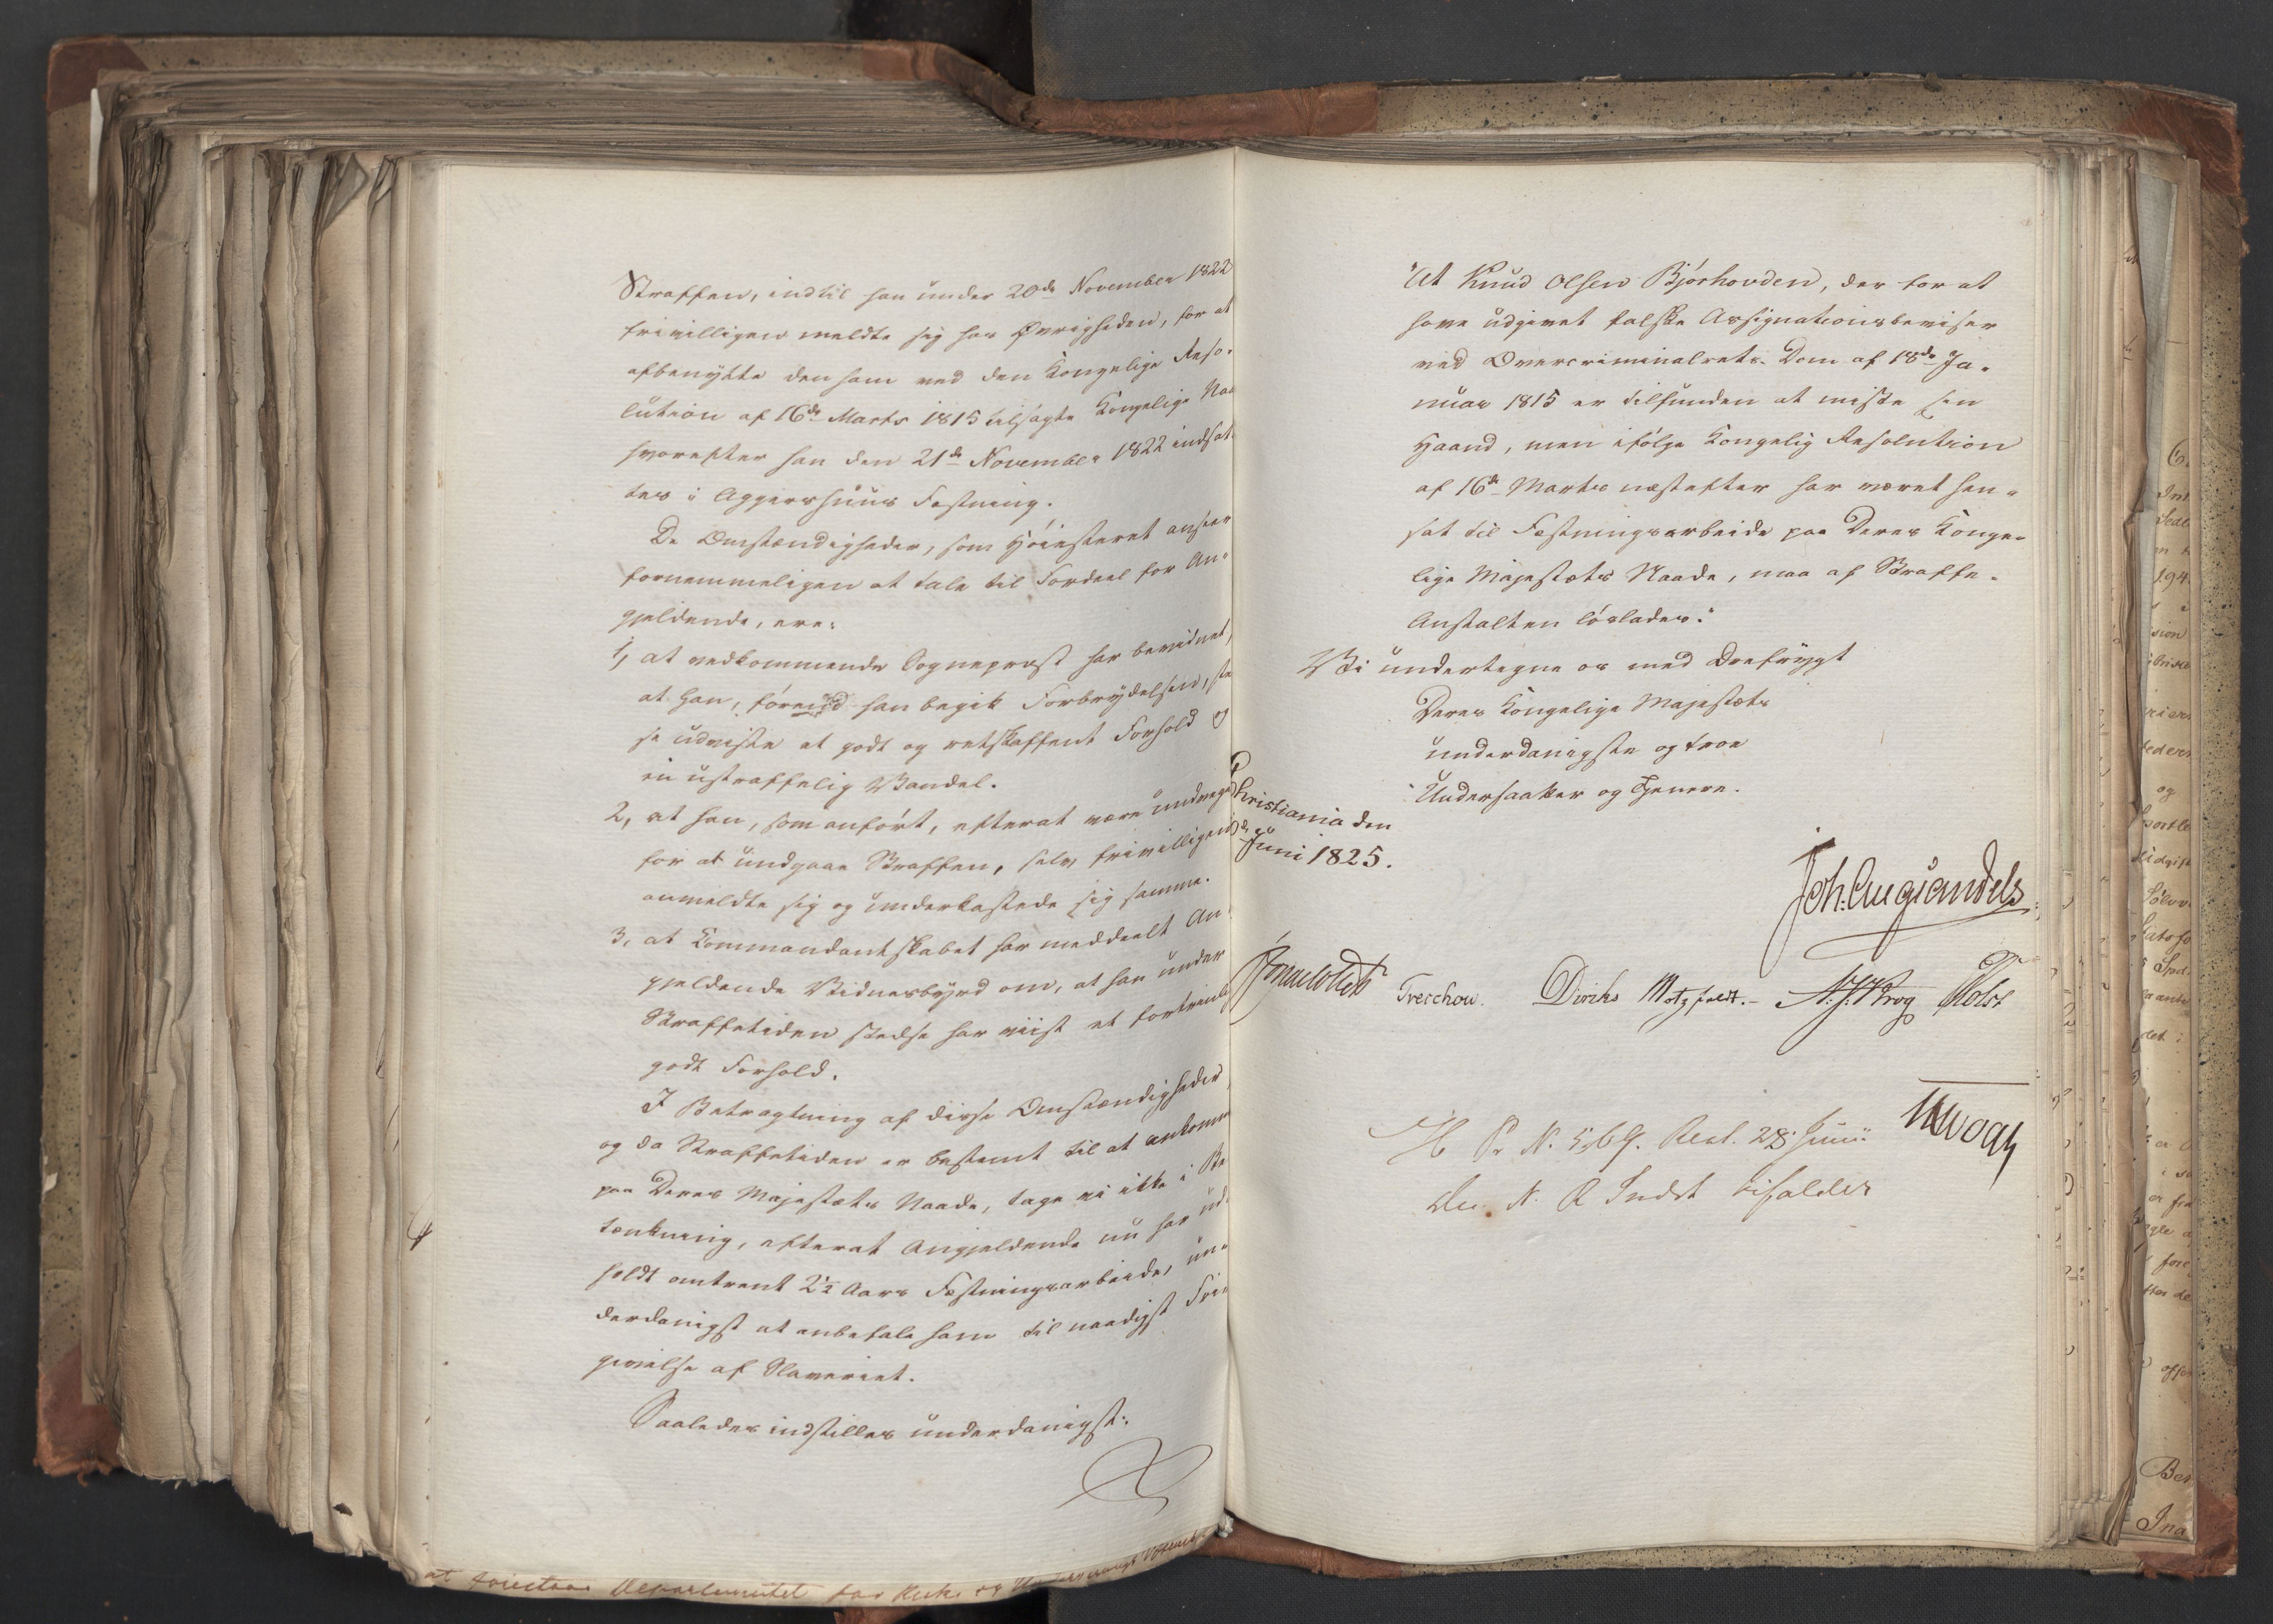 Straffen, indtil han under 20de November 1822
frivilligen meldte sig for Øvrigheden, for at
afbenytte den ham ved den Kongelige Reso-
lution af 16de Marts 1815 tilsagte Kongelige Naa
hvorefter han den 21de November 1822 indsat-
tes i Aggershuus Fæstning.
De Omstændigheder, som Høiesteret anseer
fornemmeligen at tale til Fordeel for An-
gjeldende, ere:
1, at vedkommende Sognepræst har bevidnet,
at han, førend han begik Forbrydelsen, ste
se udviste et godt og retskaffent Forhold og
en ustraffelig Vandel.
2, at han, som anført, efterat være undveget
for at undgaae Straffen, selv frivilligen
anmeldte sig og underkastede sig samme.
3, at Kommandantskabet har meddeelt An-
gjeldende Vidnesbyrd om, at han under
Straffetiden stedse har viist et fortrinlig
godt Forhold.
I Betragtning af disse Omstændigheder,
og da Straffetiden er bestemt til at ankomme
paa Deres Majestæts Naade, tage vi ikke i Be
tænkning, efterat Angjeldende nu har ud-
holdt omtrent 2½ Aars Fæstningsarbeide, un-
derdanigst at anbefale ham til naadigst Fri-
givelse af Slaveriet.
Saaledes indstilles underdanigst:
at foiestaae Departementet for Kirke og Underviisnings Væsenet
"At Knud Olsen Bjørhovden, der for at
have udgivet falske Assignationsbeviser
ved Overcriminalrets Dom af 18de Ja-
nuar 1815 er tilfunden at miste sin
Haand, men ifølge Kongelig Resolution
af 16de Marts næstefter har været hen-
sat til Fæstningsarbeide paa Deres Konge-
lige Majestæts Naade, maa af Straffe-
Anstalten løslades."
Vi undertegne os med Ærefrygt
Deres Kongelige Majestæts
underdanigste og troe
Undersaatter og Tjenere.
Christiania den
de Juni 1825.
Joh. Aug. Sandels
Sommerhielm Treschow. Diriks Motzfeldt. N. J. Krog Holst
H Pr N. 569. Resl. 28 Junii
Den N. R Indst bifaldes
Vogt